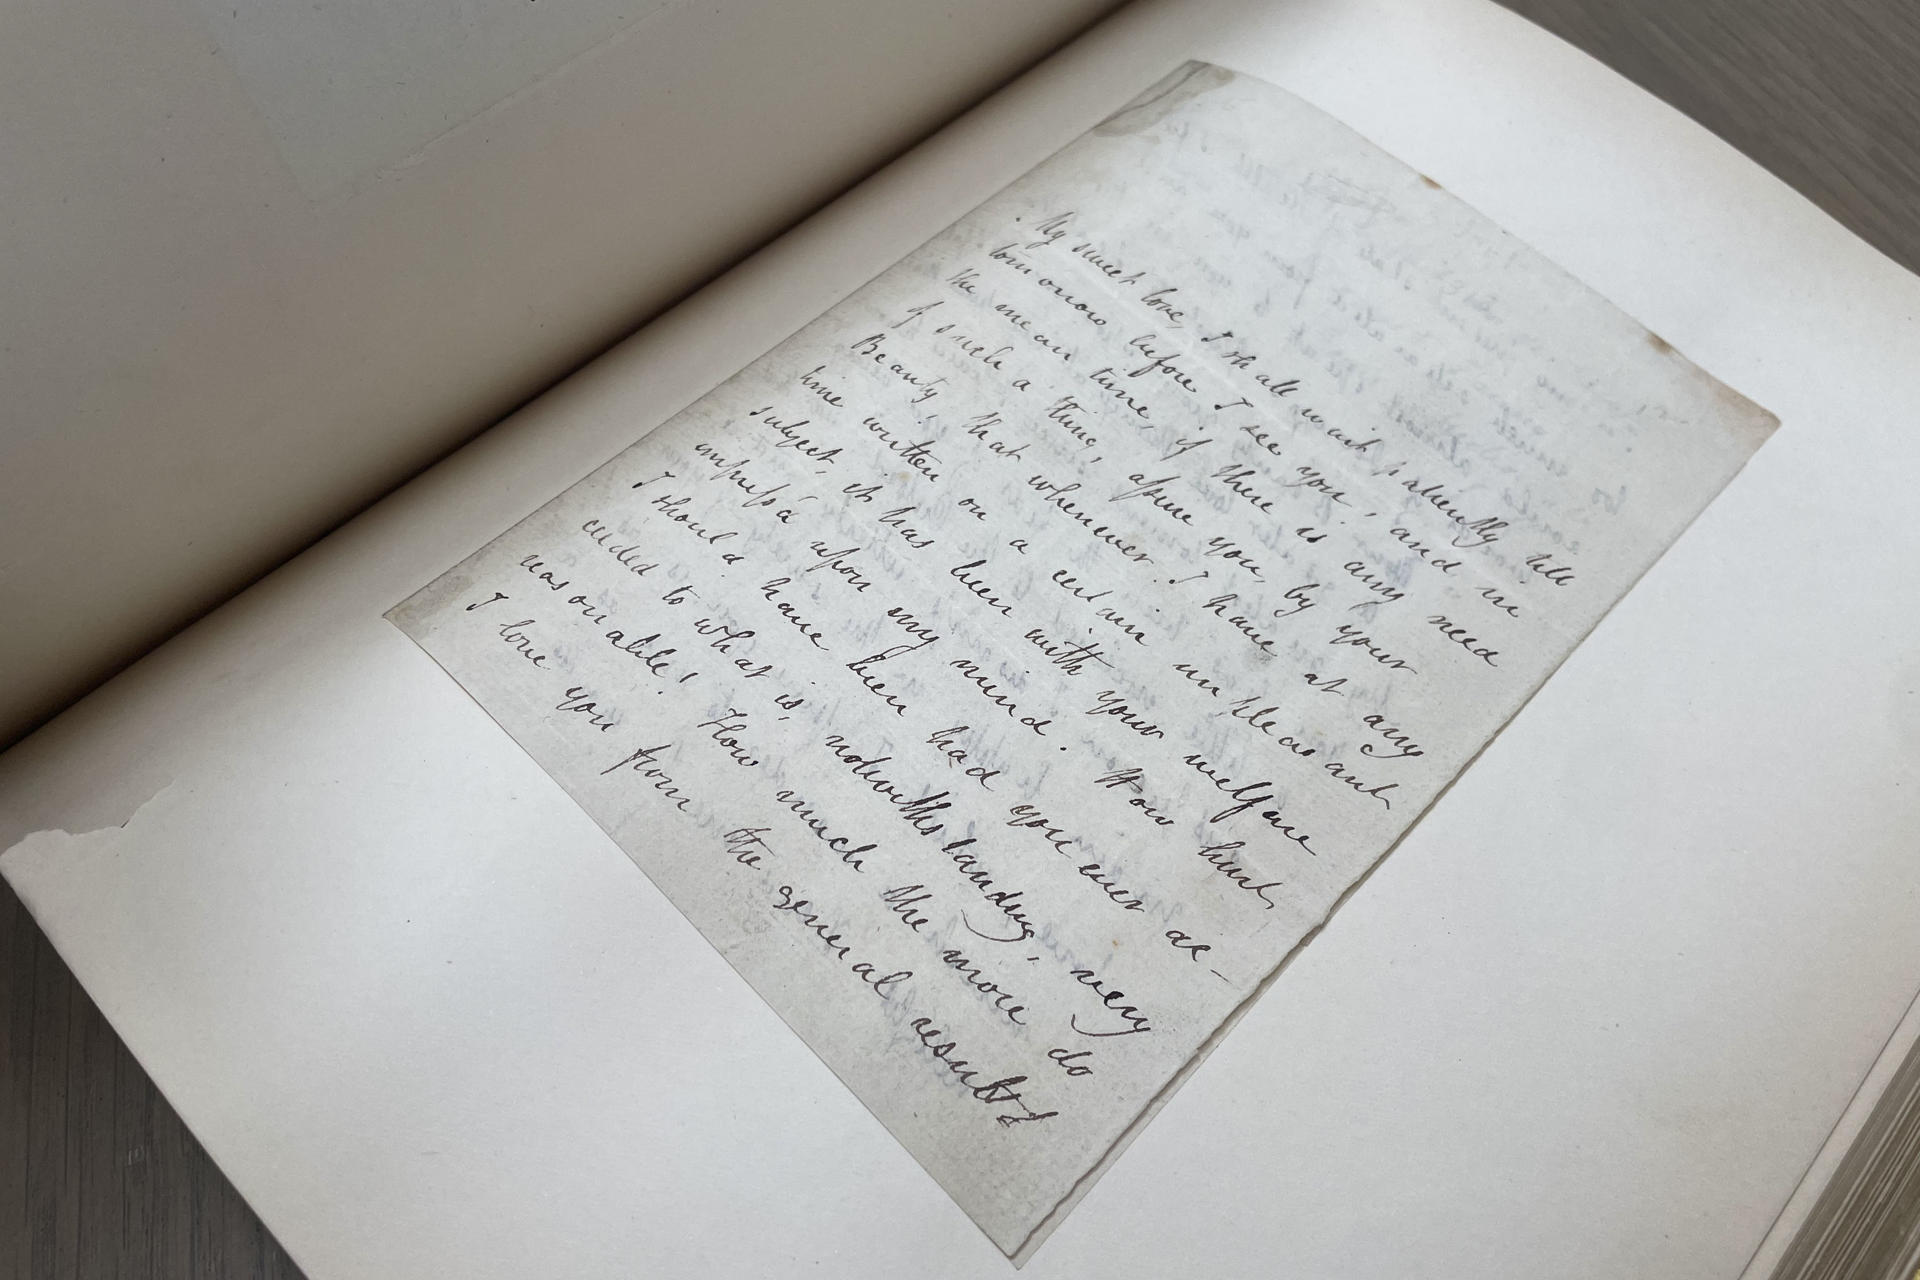 My sweet love, I shall wait patiently till
tomorrow before I see you, and in
the mean time, if there is any need
of such a thing, assure you, by your
Beauty, that whenever I have at any
time written on a certain unpleasant
subject, it has been with your welfare
impress'd upon my mind. How hurt
I should have been had you ever ac-
ceded to what is, notwithstanding, very
reasonable! How much the more do
I love you from the general results